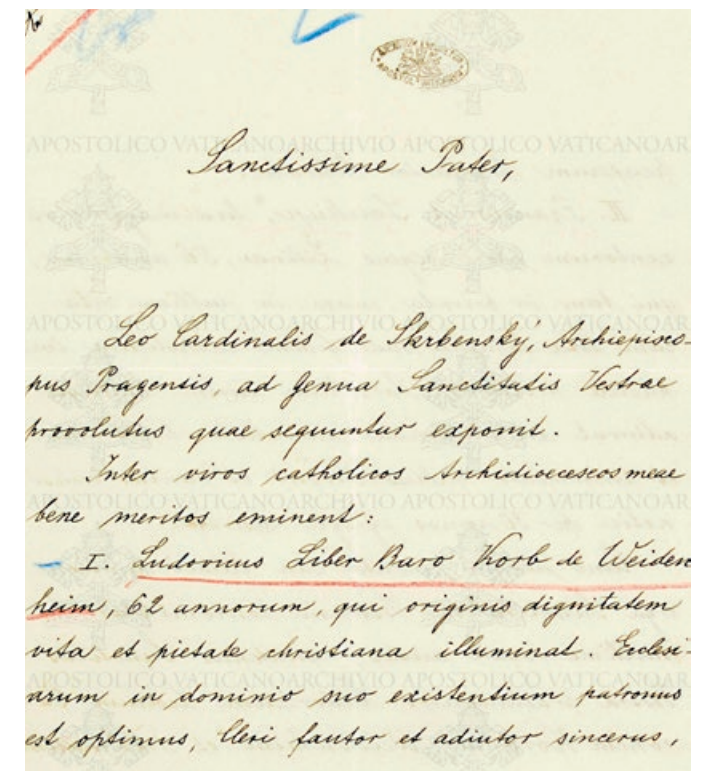 Sanctissime Pater,
Leo Cardinalis de Skrbenský, Archiepisco-
pus Pragensis, ad genua Sanctitatis Vestrae
provolutus quae sequuntur exponit.
Inter viros catholicos Archidioeceseos meae
bene meritos eminent:
I. Ludovicus Liber Baro Korb de Weiden
heim, 62 annorum, qui originis dignitatem
vita et pietate christiana illuminat. Ecclesi-
arum in dominio suo existentium patronus
est optimus, Cleri fautor et adiutor sincerus,